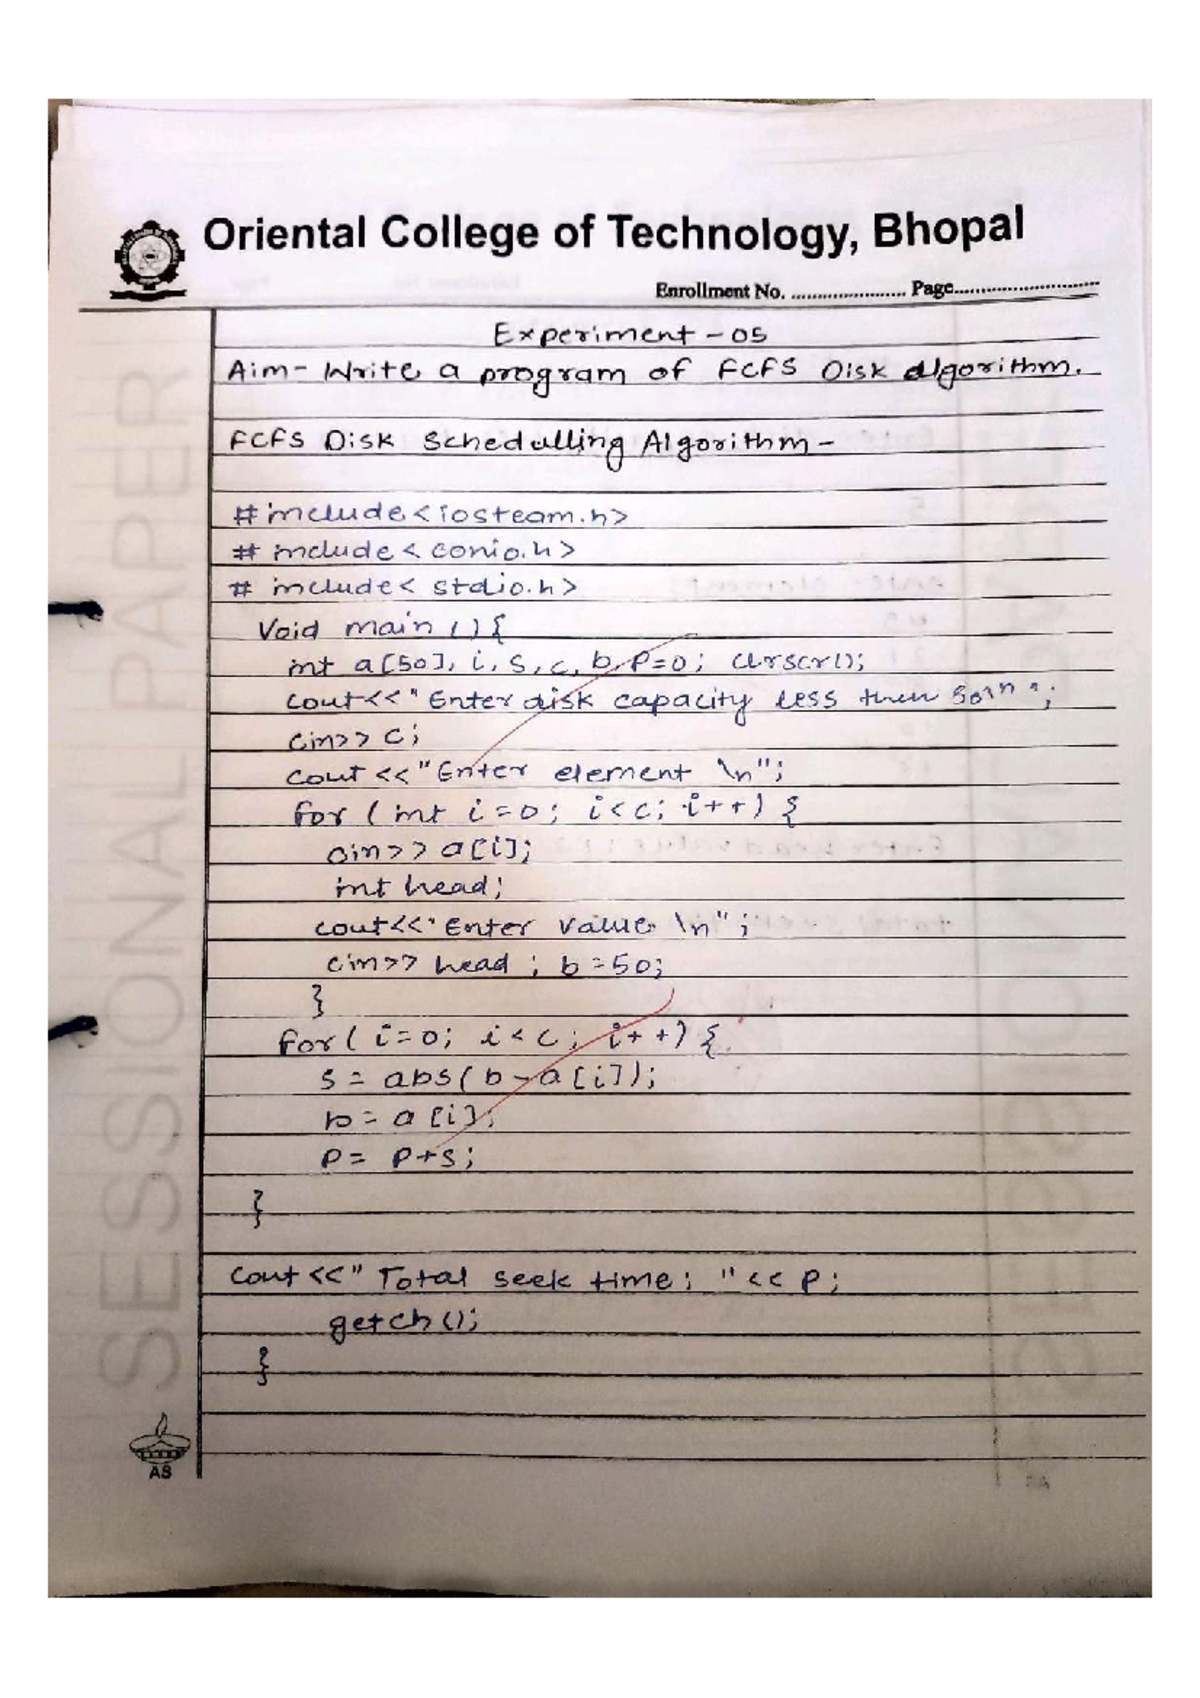 Oriental College of Technology, Bhopal
Enrollment No. ....................... Page.............................
Experiment - 05
Aim- Write a program of FCFS Disk algorithm.
FCFS Disk Schedulling Algorithm -
#include<iosteam.h>
# include< conio.h>
# include< stdio.h>
Void main () {
int a[50], i, s, c, b, P=0; clrscr();
cout<<"Enter disk capacity less then 50\n";
cin>> c;
cout <<"Enter element \n";
for ( int i = 0; i < c; i++) {
cin>> a[i];
int head;
cout<<"Enter value \n";
cin>> head ; b = 50;
}
for ( i = 0; i < c ; i++) {
s = abs( b - a [i]);
b = a [i];
P = P+s;
}
Cout <<" Total seek time; "<< P;
getch ();
}
SESSIONAL PAPER
AS